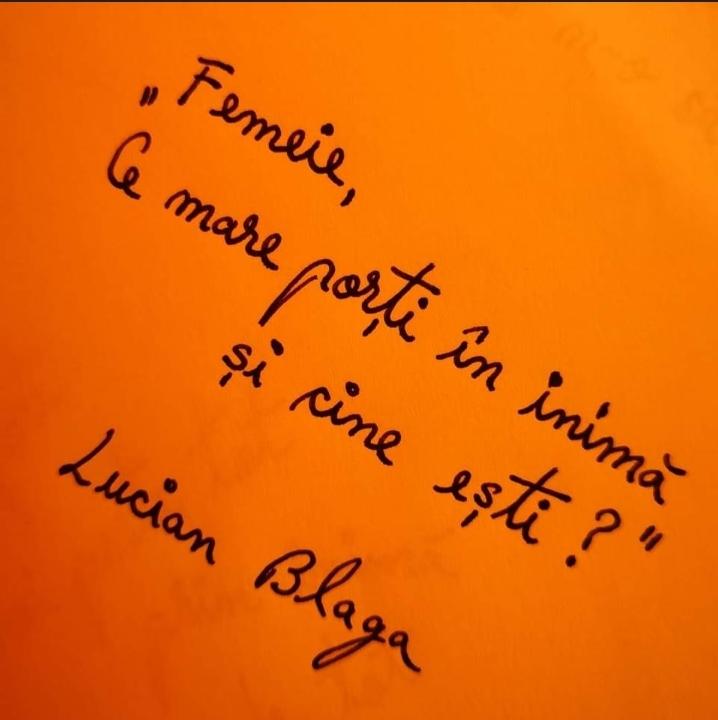 „Femeie,
Ce mare porți în inimă
și cine ești?"
Lucian Blaga